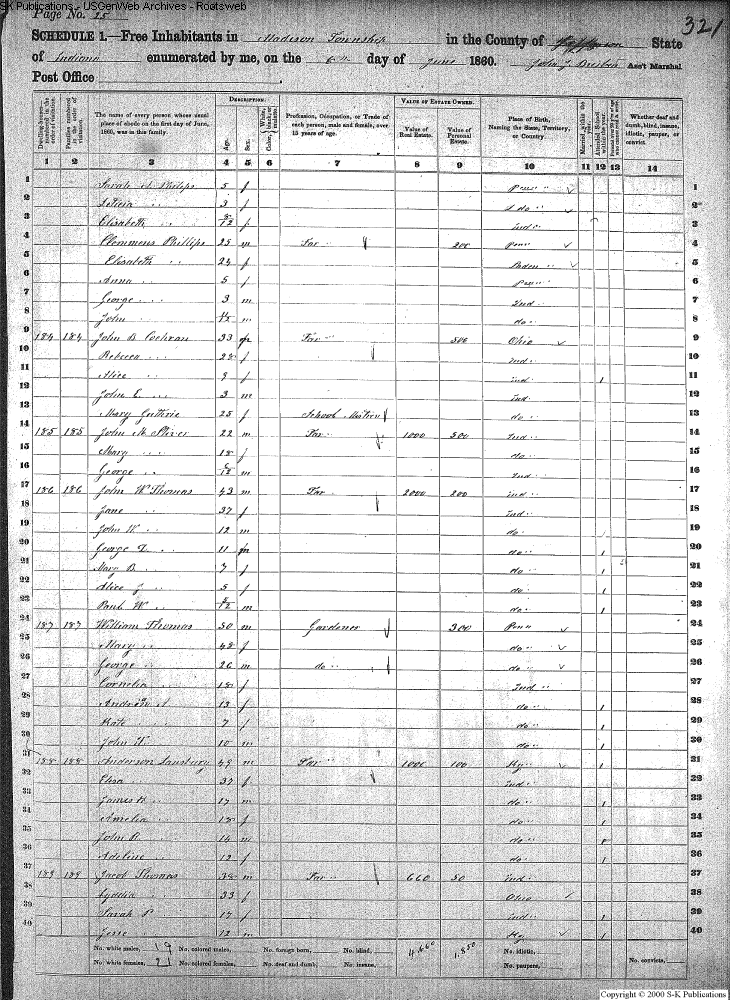 S-K Publications - USGenWeb Archives - Rootsweb
Page No. 25
321
SCHEDULE 1.—Free Inhabitants in Madison Township in the County of Jefferson State
of Indiana enumerated by me, on the day of June 1860. Ass't Marshal
Post Office
Dwelling-houses—numbered in the order of visitation.
Families numbered in the order of visitation.
The name of every person whose usual place of abode on the first day of June, 1860, was in this family.
DESCRIPTION.
Age.
Sex.
Color, White, black, or mulatto.
Profession, Occupation, or Trade of each person, male and female, over 15 years of age.
VALUE OF ESTATE OWNED.
Value of Real Estate.
Value of Personal Estate.
Place of Birth, Naming the State, Territory, or Country.
Married within the year.
Attended School within the year.
Whether deaf and dumb, blind, insane, idiotic, pauper, or convict.
1 2 3 4 5 6 7 8 9 10 11 12 13 14
1 Sarah Philips 5 f Penn 1
2 Leticia 3 f do 2
3 Elisabeth /12 f Ind 3
4 Clemmens Phillips 25 m Far 200 Penn 4
5 Elisabeth 24 f 5
6 Anna 5 f Penn 6
7 George 3 m Ind 7
8 John /12 m do 8
9 184 184 John B Cochran 33 m Far 500 Ohio 9
10 Rebecca 28 f Ind 10
11 Alice 9 f Ind 1 11
12 John E 3 m Ind 12
13 Mary Guthrie 25 f School do 13
14 185 185 John M 22 m Far 1000 500 Ind 14
15 Mary 18 f do 15
16 George /12 m Ind 16
17 186 186 John W Thomas 43 m Far 2000 200 Ind 17
18 Jane 37 f Ind 18
19 John W 12 m do 1 19
20 George 11 m do 1 20
21 Mary B 7 f do 1 21
22 Alice J 5 f do 1 22
23 Paul W /12 m do 23
24 187 187 William Thomas 50 m Gardener 300 Penn 24
25 Mary 48 f do 25
26 George 26 m do do 26
27 Cornelia 18 f Ind 27
28 Andrew 13 do 1 28
29 Kate 7 f do 1 29
30 John W 10 m do 1 30
31 188 188 Anderson 49 m Far 1000 100 Ky 31
32 Elisa 37 f Ind 32
33 James B 17 m do 1 33
34 Amelia 18 f do 1 34
35 John R 14 m do 1 35
36 Adeline 12 f do 1 36
37 189 189 Jacob Thomas 38 m Far 660 50 Ind 37
38 Lydia 33 f Ohio 38
39 Sarah 17 f Ind 1 39
40 Jesse 12 m Ky 1 40
No. white males, 19 No. colored males, No. foreign born, No. blind, 4.660 1.850 No. idiotic,
No. white females, 21 No. colored females, No. deaf and dumb, No. insane, No. paupers, No. convicts,
Copyright © 2000 S-K Publications